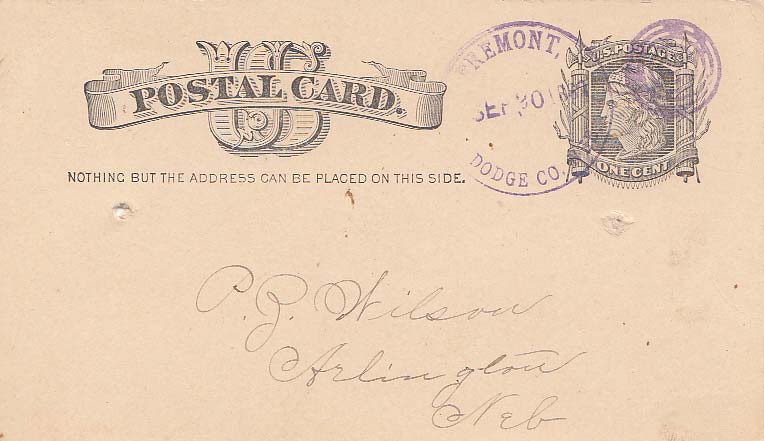 US
POSTAL CARD.
NOTHING BUT THE ADDRESS CAN BE PLACED ON THIS SIDE.
FREMONT,
SEP 30
DODGE CO.
U.S. POSTAGE
ONE CENT
P. Z. Wilson
Arlington
Neb